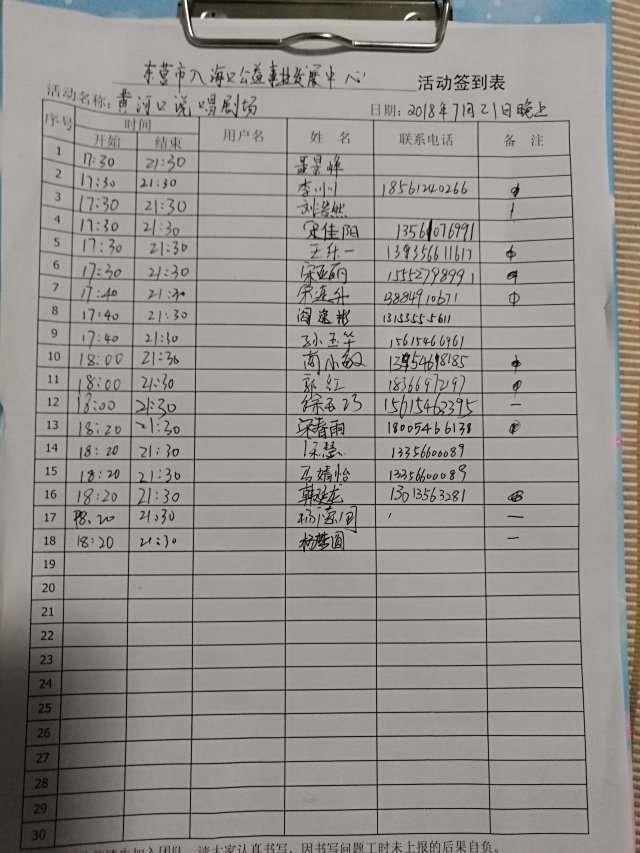 东营市入海口公益事业发展中心 活动签到表
活动名称：黄河口说唱剧场 日期：2018年7月21日晚上
序号 时间 用户名 姓名 联系电话 备注
开始 结束
1 17:30 21:30
2 17:30 21:30 李小川 18561240266
3 17:30 21:30 刘浩然
4 17:30 21:30 宋佳阳 13561076991
5 17:30 21:30 王乐一 13935661161
6 17:30 21:30 宋亚丽 15552798991
7 17:40 21:30 宋连升 13884910671
8 17:40 21:30 13153555611
9 17:40 21:30 孙玉华 15615466961
10 18:00 21:30 商小敏 13954698185
11 18:00 21:30 郭红 1836697297
12 18:00 21:30 徐玉巧 15615463395 —
13 18:20 21:30 宋春雨 18005466138
14 18:20 21:30 13356600089
15 18:20 21:30 马婧怡 13356600089
16 18:20 21:30 13013563281
17 18:20 21:30 —
18 18:20 21:30 杨梦圆 —
19
20
21
22
23
24
25
26
27
28
29
30
加入团队，请大家认真书写，因书写问题工时未上报的后果自负。